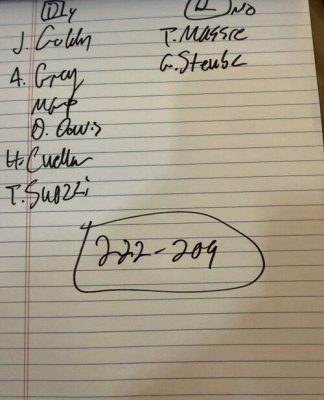 D Y
R NO
J. Golden
T. Massie
A. Gray
G. Steube
MGP
D. Davis
H. Cuellar
T. Suozzi
222-209